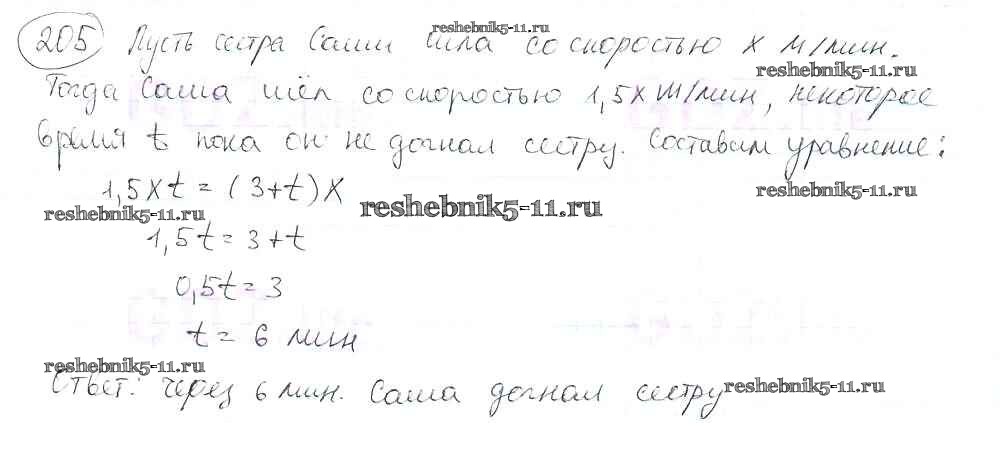 reshebnik5-11.ru
205 Пусть сестра Саши шла со скоростью x м/мин.
reshebnik5-11.ru
Тогда Саша шёл со скоростью 1,5x м/мин, некоторое
время t пока он не догнал сестру. Составим уравнение:
1,5xt = (3+t)x
reshebnik5-11.ru
reshebnik5-11.ru
reshebnik5-11.ru
1,5t = 3+t
0,5t = 3
t = 6 мин
reshebnik5-11.ru
Ответ: через 6 мин. Саша догнал сестру
reshebnik5-11.ru